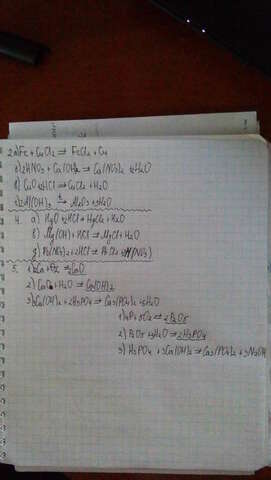 2 а) Fe + CuCl₂ = FeCl₂ + Cu
б) 2HNO₃ + Ca(OH)₂ = Ca(NO₃)₂ + 2H₂O
в) CuO + 2HCl = CuCl₂ + H₂O
г) 2Al(OH)₃ = Al₂O₃ + 3H₂O
4. а) HgO + 2HCl = HgCl₂ + H₂O
б) Mg(OH) + HCl = MgCl + H₂O
Pb(NO₃)₂ + 2HCl = PbCl₂ +
5. 1) 2Ca + O₂ = 2CaO
2) CaO + H₂O = Ca(OH)₂
3) 3Ca(OH)₂ + 2H₃PO₄ = Ca₃(PO₄)₂ + 6H₂O
1) 4P + 5O₂ = 2P₂O₅
2) P₂O₅ + 3H₂O = 2H₃PO₄
3) H₃PO₄ + 3Ca(OH)₂ = Ca₃(PO₄)₂ +